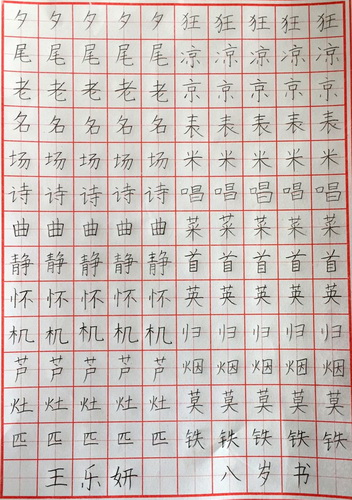 夕夕夕夕夕狂狂狂狂狂
尾尾尾尾尾凉凉凉凉凉
老老老老老京京京京京
名名名名名表表表表表
场场场场场米米米米米
诗诗诗诗诗唱唱唱唱唱
曲曲曲曲曲菜菜菜菜菜
静静静静静首首首首首
怀怀怀怀怀英英英英英
机机机机机归归归归归
芦芦芦芦芦烟烟烟烟烟
灶灶灶灶灶莫莫莫莫莫
匹匹匹匹匹铁铁铁铁铁
王乐妍八岁书